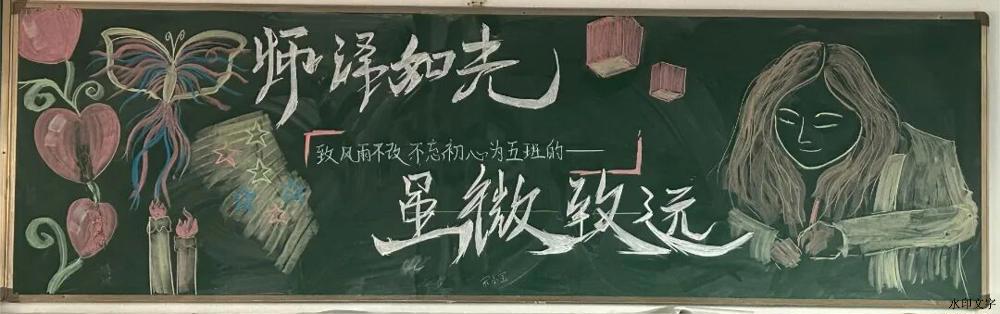 师泽如光
致风雨不改不忘初心为五班的——
虽微致远
水印文字